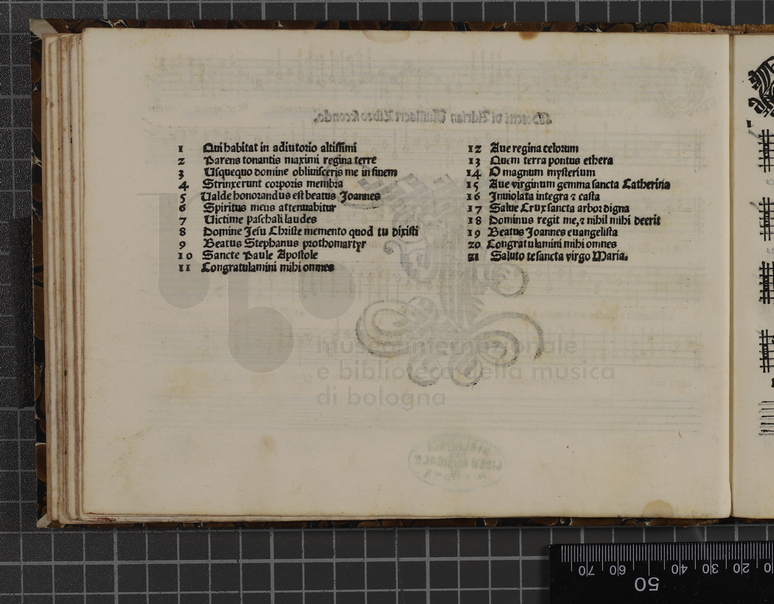 1 Qui habitat in adiutorio altissimi
2 Parens tonantis maximi regina terre
3 Usquequo domine oblivisceris me in finem
4 Strinxerunt corporis membra
5 Ualde honorandus est beatus Joannes
6 Spiritus meus attenuabitur
7 Uictime paschali laudes
8 Domine Jesu Christe memento quod tu dixisti
9 Beatus Stephanus prothomartyr
10 Sancte Paule Apostole
11 Congratulamini mihi omnes
12 Aue regina celorum
13 Quem terra pontus ethera
14 O magnum mysterium
15 Aue virginum gemma sancta Catherina
16 Inuiolata integra ⁊ casta
17 Salue Crux sancta arbor digna
18 Dominus regit me, ⁊ nihil mihi deerit
19 Beatus Joannes euangelista
20 Congratulamini mihi omnes
21 Saluto te sancta virgo Maria.
museo internazionale
e biblioteca della musica
di bologna
10 20 30 40 50 60 70